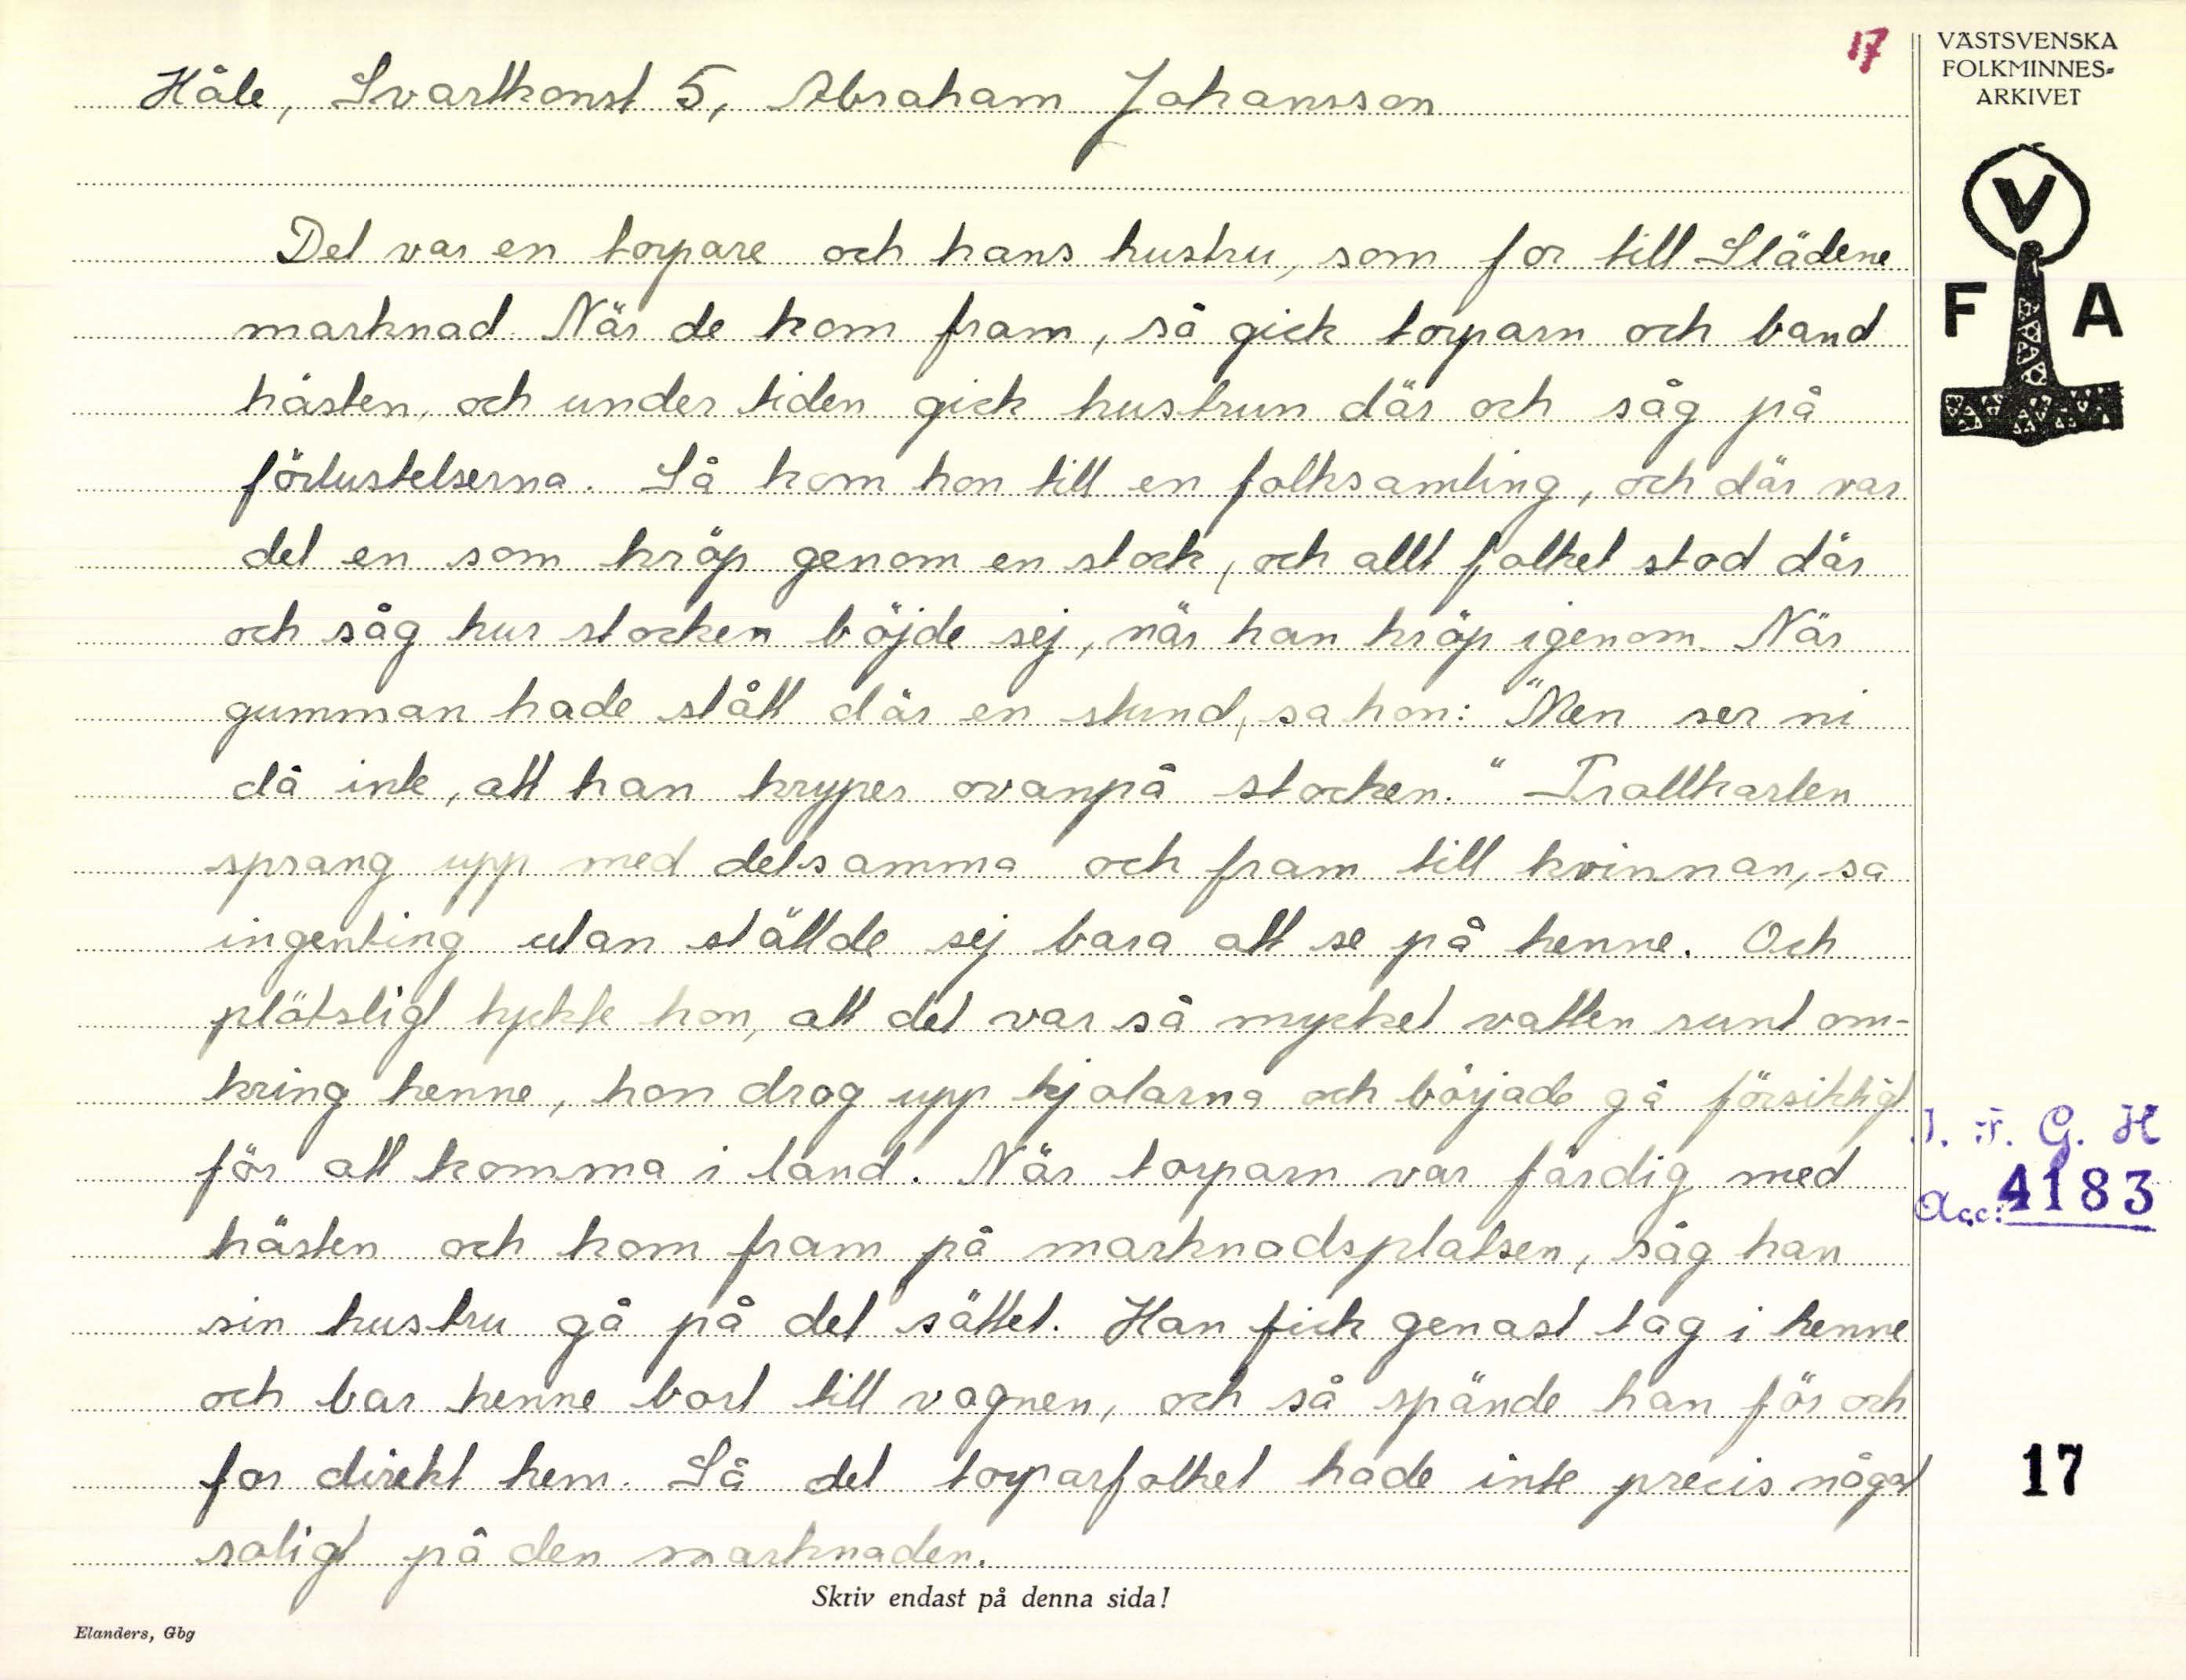 17
Håle, Svartkonst 5, Abraham Johansson
Det var en torpare och hans hustru, som for till Slädene
marknad. När de kom fram, så gick torparn och band
hästen, och under tiden gick hustrun där och såg på
förlustelserna. Så kom hon till en folksamling, och där var
det en som kröp genom en stock, och allt folket stod där
och såg hur stocken böjde sej, när han kröp igenom. När
gumman hade stått där en stund, sa hon: "Men ser ni
då inte, att han kryper ovanpå stocken." Trollkarlen
sprang upp med detsamma och fram till kvinnan, sa
ingenting utan ställde sej bara att se på henne. Och
plötsligt tyckte hon, att det var så mycket vatten runt om-
kring henne, hon drog upp kjolarna och började gå försiktigt
för att komma i land. När torparn var färdig med
hästen och kom fram på marknadsplatsen, såg han
sin hustru gå på det sättet. Han fick genast tag i henne
och bar henne bort till vagnen, och så spände han för och
for direkt hem. Så det torparfolket hade inte precis något
roligt på den marknaden.
Skriv endast på denna sida!
Elanders, Gbg
VÄSTSVENSKA
FOLKMINNES-
ARKIVET
V
F A
I. F. G. H
Acc: 4183
17